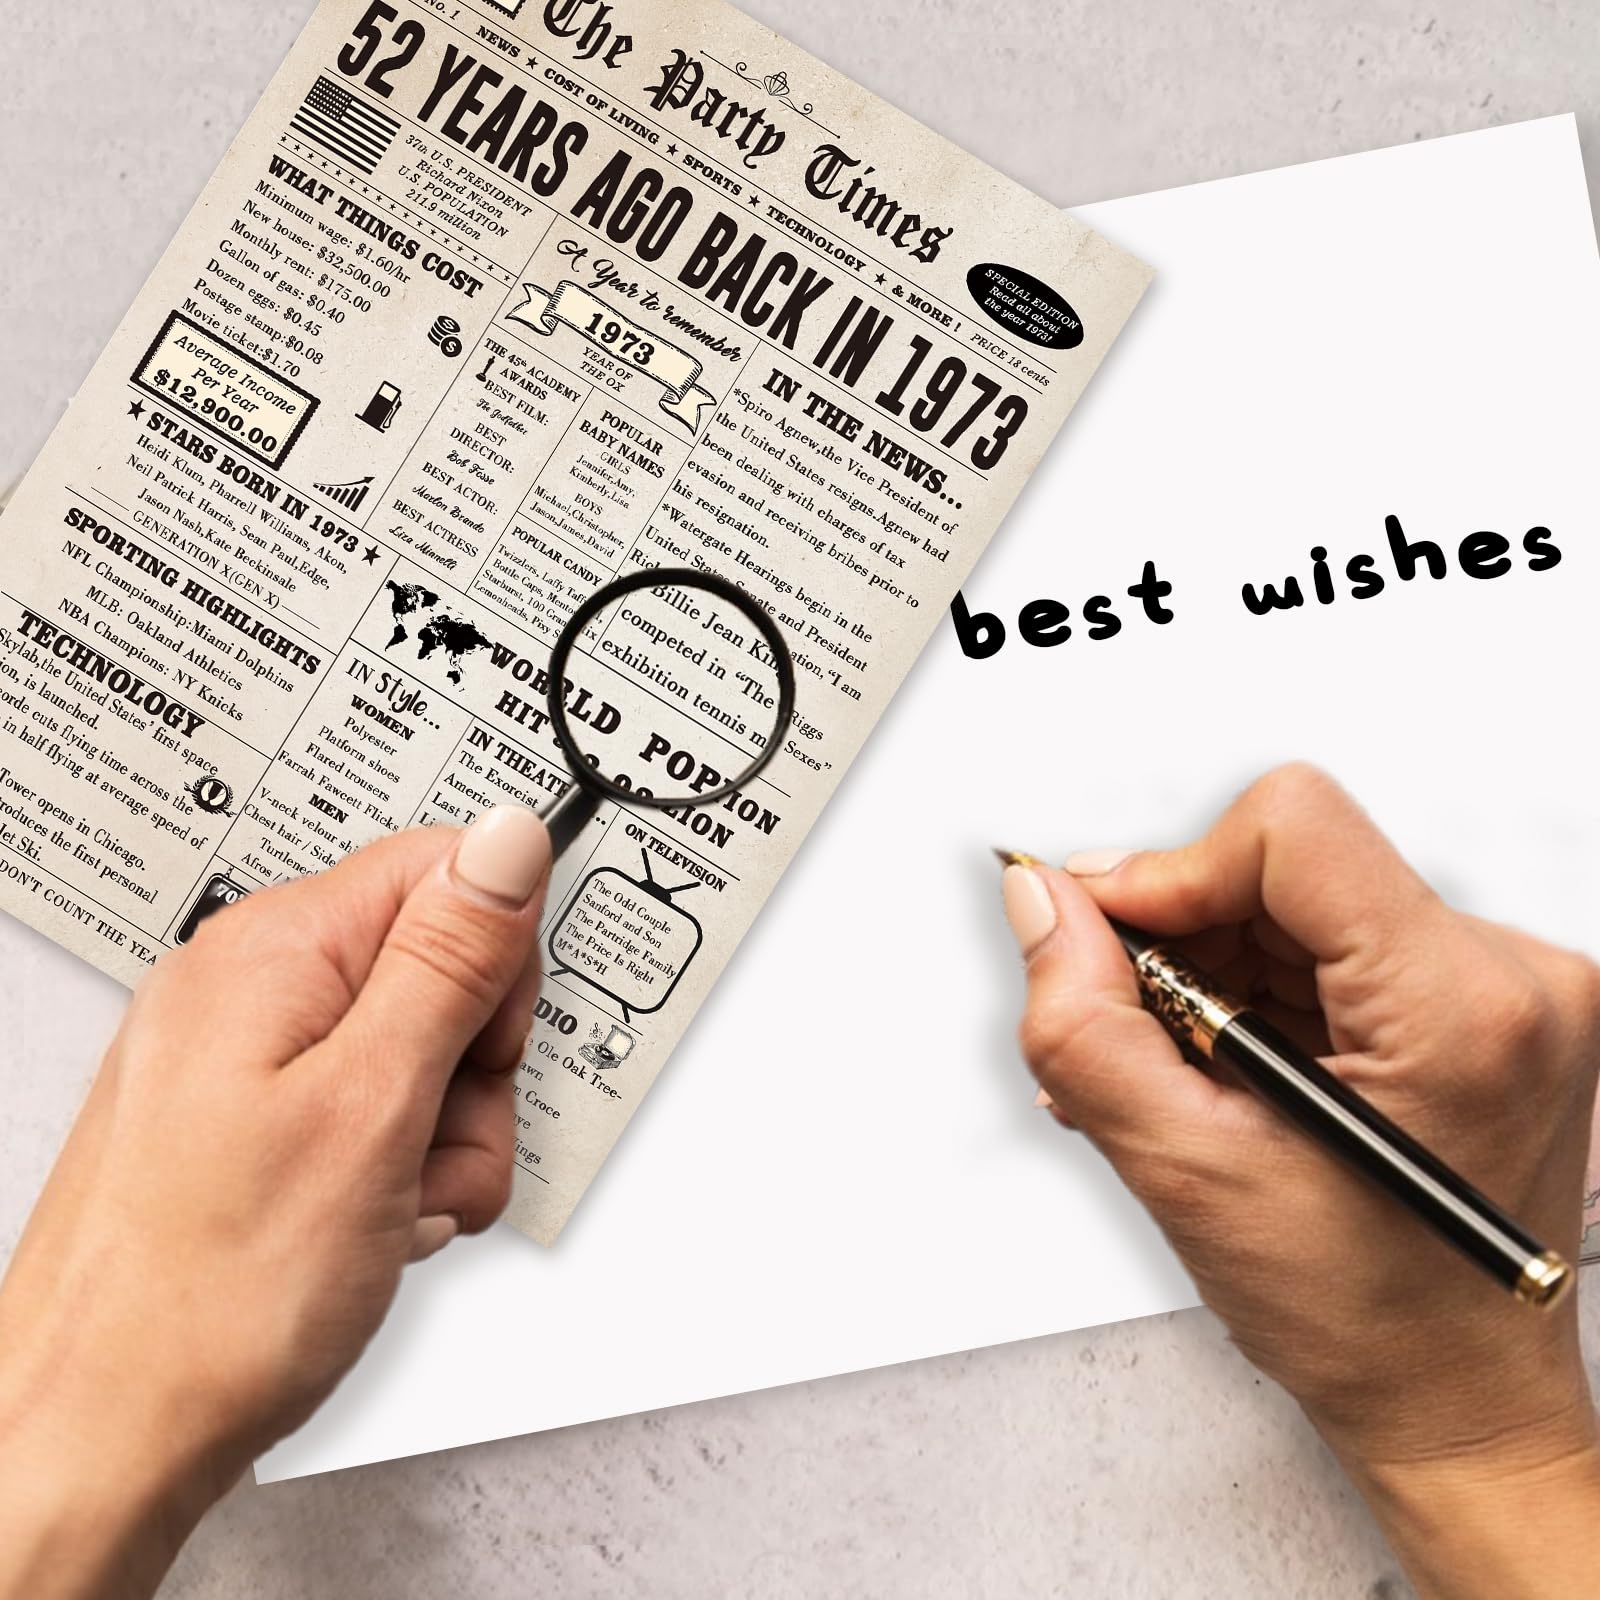 No. 1
The Party Times
NEWS ★ COST OF LIVING ★ SPORTS ★ TECHNOLOGY ★ & MORE!
PRICE 18 cents
SPECIAL EDITION
Read all about
the year 1973!
52 YEARS AGO BACK IN 1973
37th U.S. PRESIDENT
Richard Nixon
U.S. POPULATION
211.9 million
WHAT THINGS COST
Minimum wage: $1.60/hr
New house: $32,500.00
Monthly rent: $175.00
Gallon of gas: $0.40
Dozen eggs: $0.45
Postage stamp:$0.08
Movie ticket:$1.70
Average Income
Per Year
$12,900.00
★ STARS BORN IN 1973 ★
Heidi Klum, Pharrell Williams, Akon,
Neil Patrick Harris, Sean Paul,Edge,
Jason Nash,Kate Beckinsale
GENERATION X(GEN X)
SPORTING HIGHLIGHTS
NFL Championship:Miami Dolphins
MLB: Oakland Athletics
NBA Champions: NY Knicks
TECHNOLOGY
Skylab,the United States' first space
is launched.
cuts flying time across the
in half flying at average speed of
Tower opens in Chicago.
the first personal
Jet Ski.
DON'T COUNT THE
A Year to remember
1973
YEAR OF
THE OX
THE 45th ACADEMY
AWARDS
BEST FILM:
The Godfather
BEST
DIRECTOR:
Bob Fosse
BEST ACTOR:
Marlon Brando
BEST ACTRESS
Liza Minnelli
POPULAR
BABY NAMES
GIRLS
Jennifer,Amy,
Kimberly,Lisa
BOYS
Michael,Christopher,
Jason,James,David
POPULAR CANDY
Twizzlers, Laffy Taffy
Bottle Caps,
Starburst, 100 Grand
Lemonheads, Pixy
IN THE NEWS...
*Spiro Agnew,the Vice President of
the United States resigns.Agnew had
been dealing with charges of tax
evasion and receiving bribes prior to
his resignation.
*Watergate Hearings begin in the
United States Senate and President
"I am
Billie Jean King
Riggs
competed in "The
Sexes"
exhibition tennis
WORLD POP ION
HIT
IN Style...
WOMEN
Polyester
Platform shoes
Flared trousers
Farrah Fawcett Flicks
MEN
V-neck velour
Chest hair / Side
Afros /
70
IN THEATE
The Exorcist
America
Last
ON TELEVISION
The Odd Couple
Sanford and Son
The Partridge Family
The Price Is Right
M*A*S*H
DIO
Ole Oak Tree-
Croce
best wishes